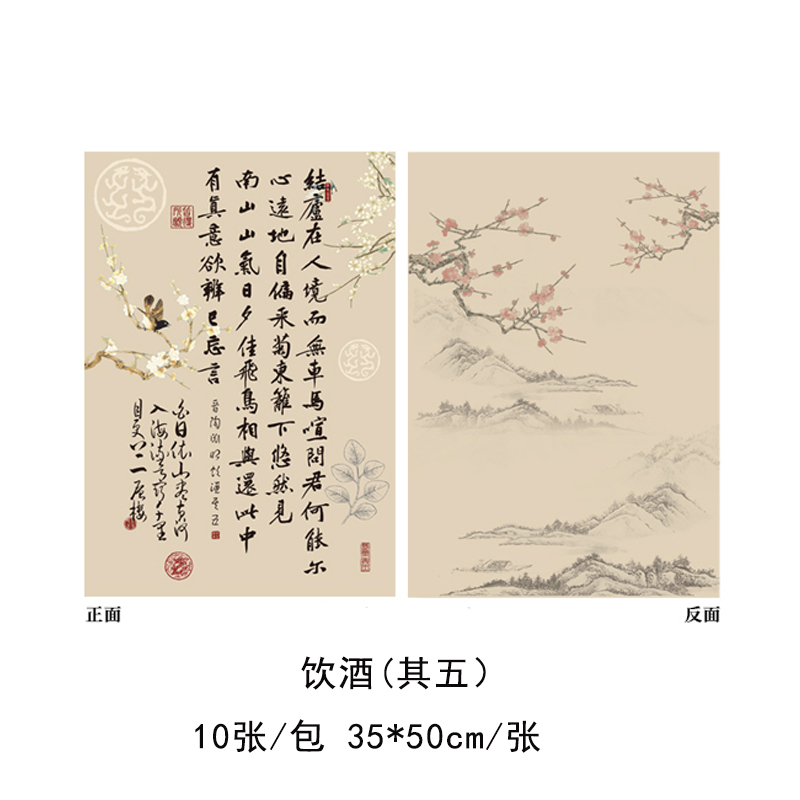 結廬在人境而無車馬喧問君何能尔
心遠地自偏采菊東籬下悠然見
南山山氣日夕佳飛鳥相與還此中
有真意欲辨已忘言
白日依山尽黄河
入海流欲窮千里
目更上一层楼
正面
反面
饮酒(其五)
10张/包 35*50cm/张